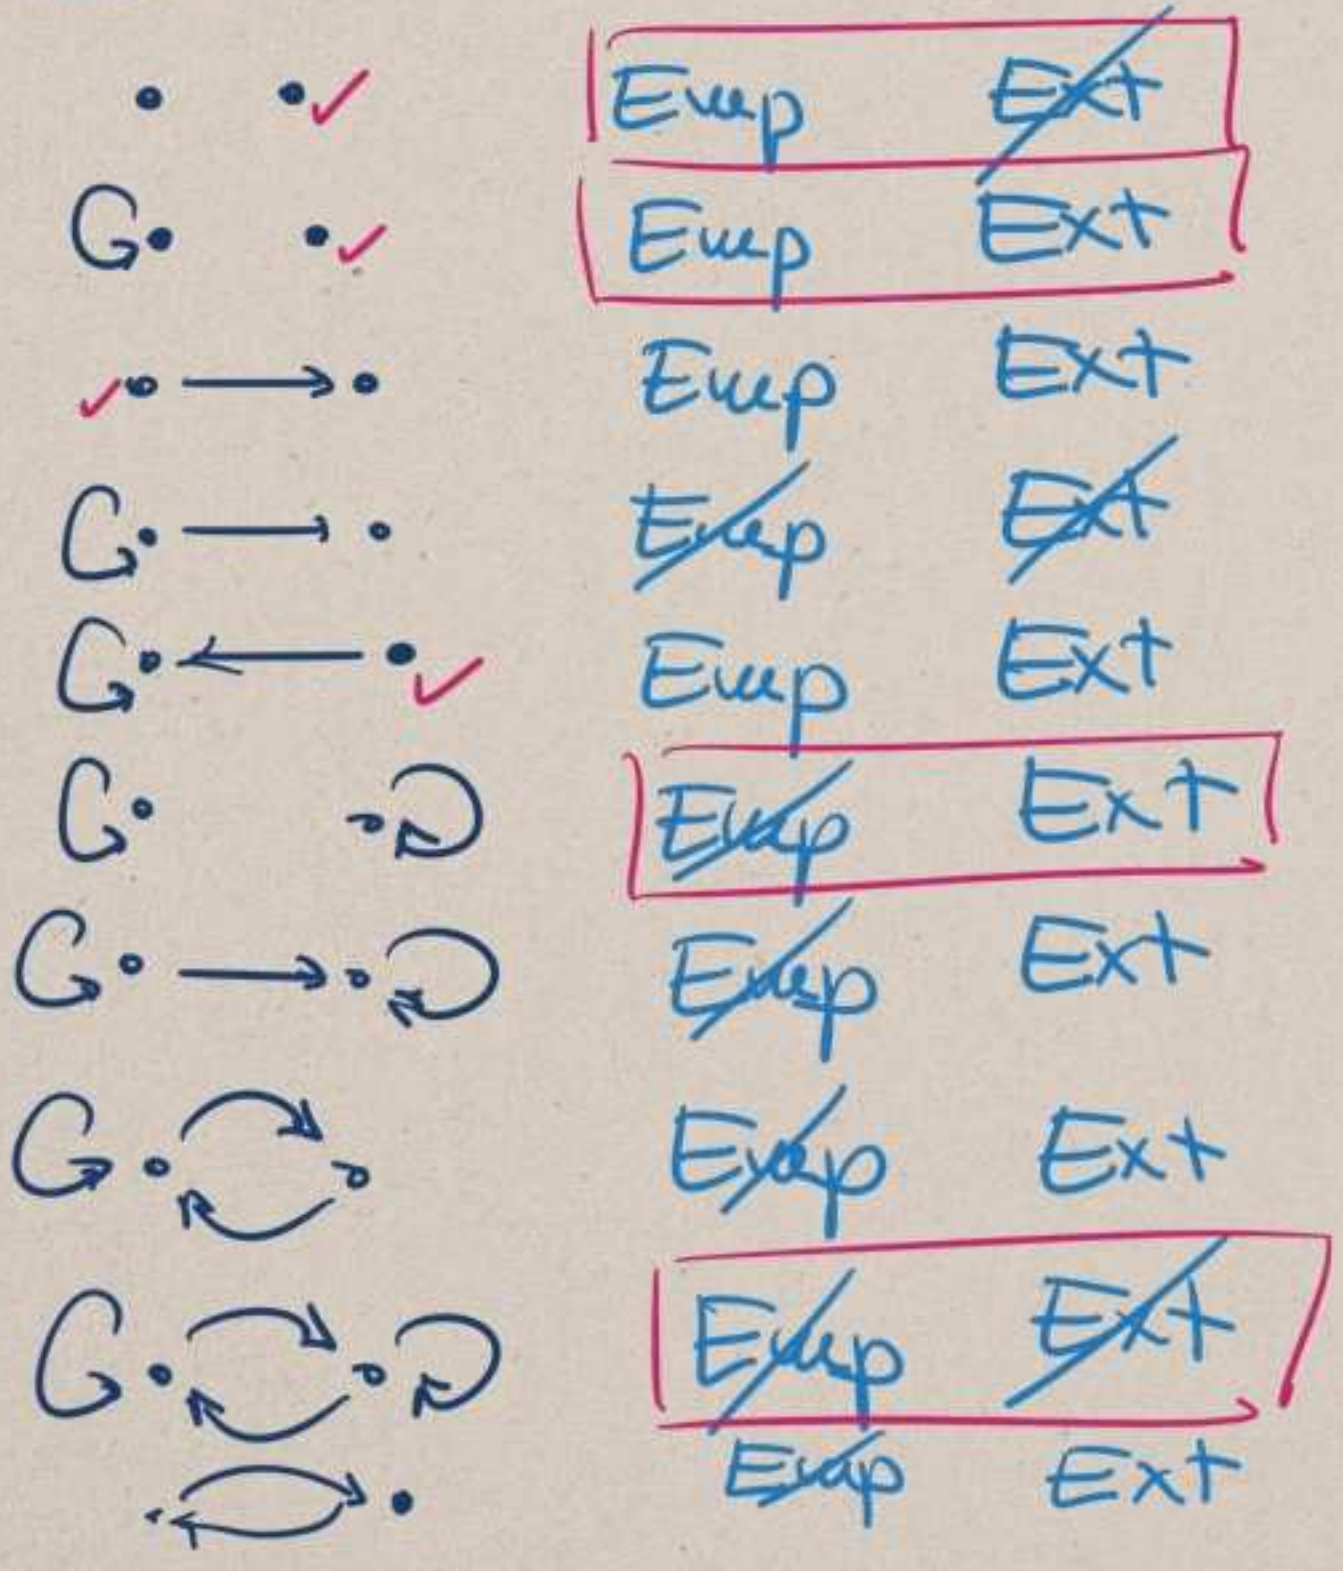 Emp Ext
Emp Ext
Emp Ext
Emp Ext
Emp Ext
Emp Ext
Emp Ext
Emp Ext
Emp Ext
Emp Ext